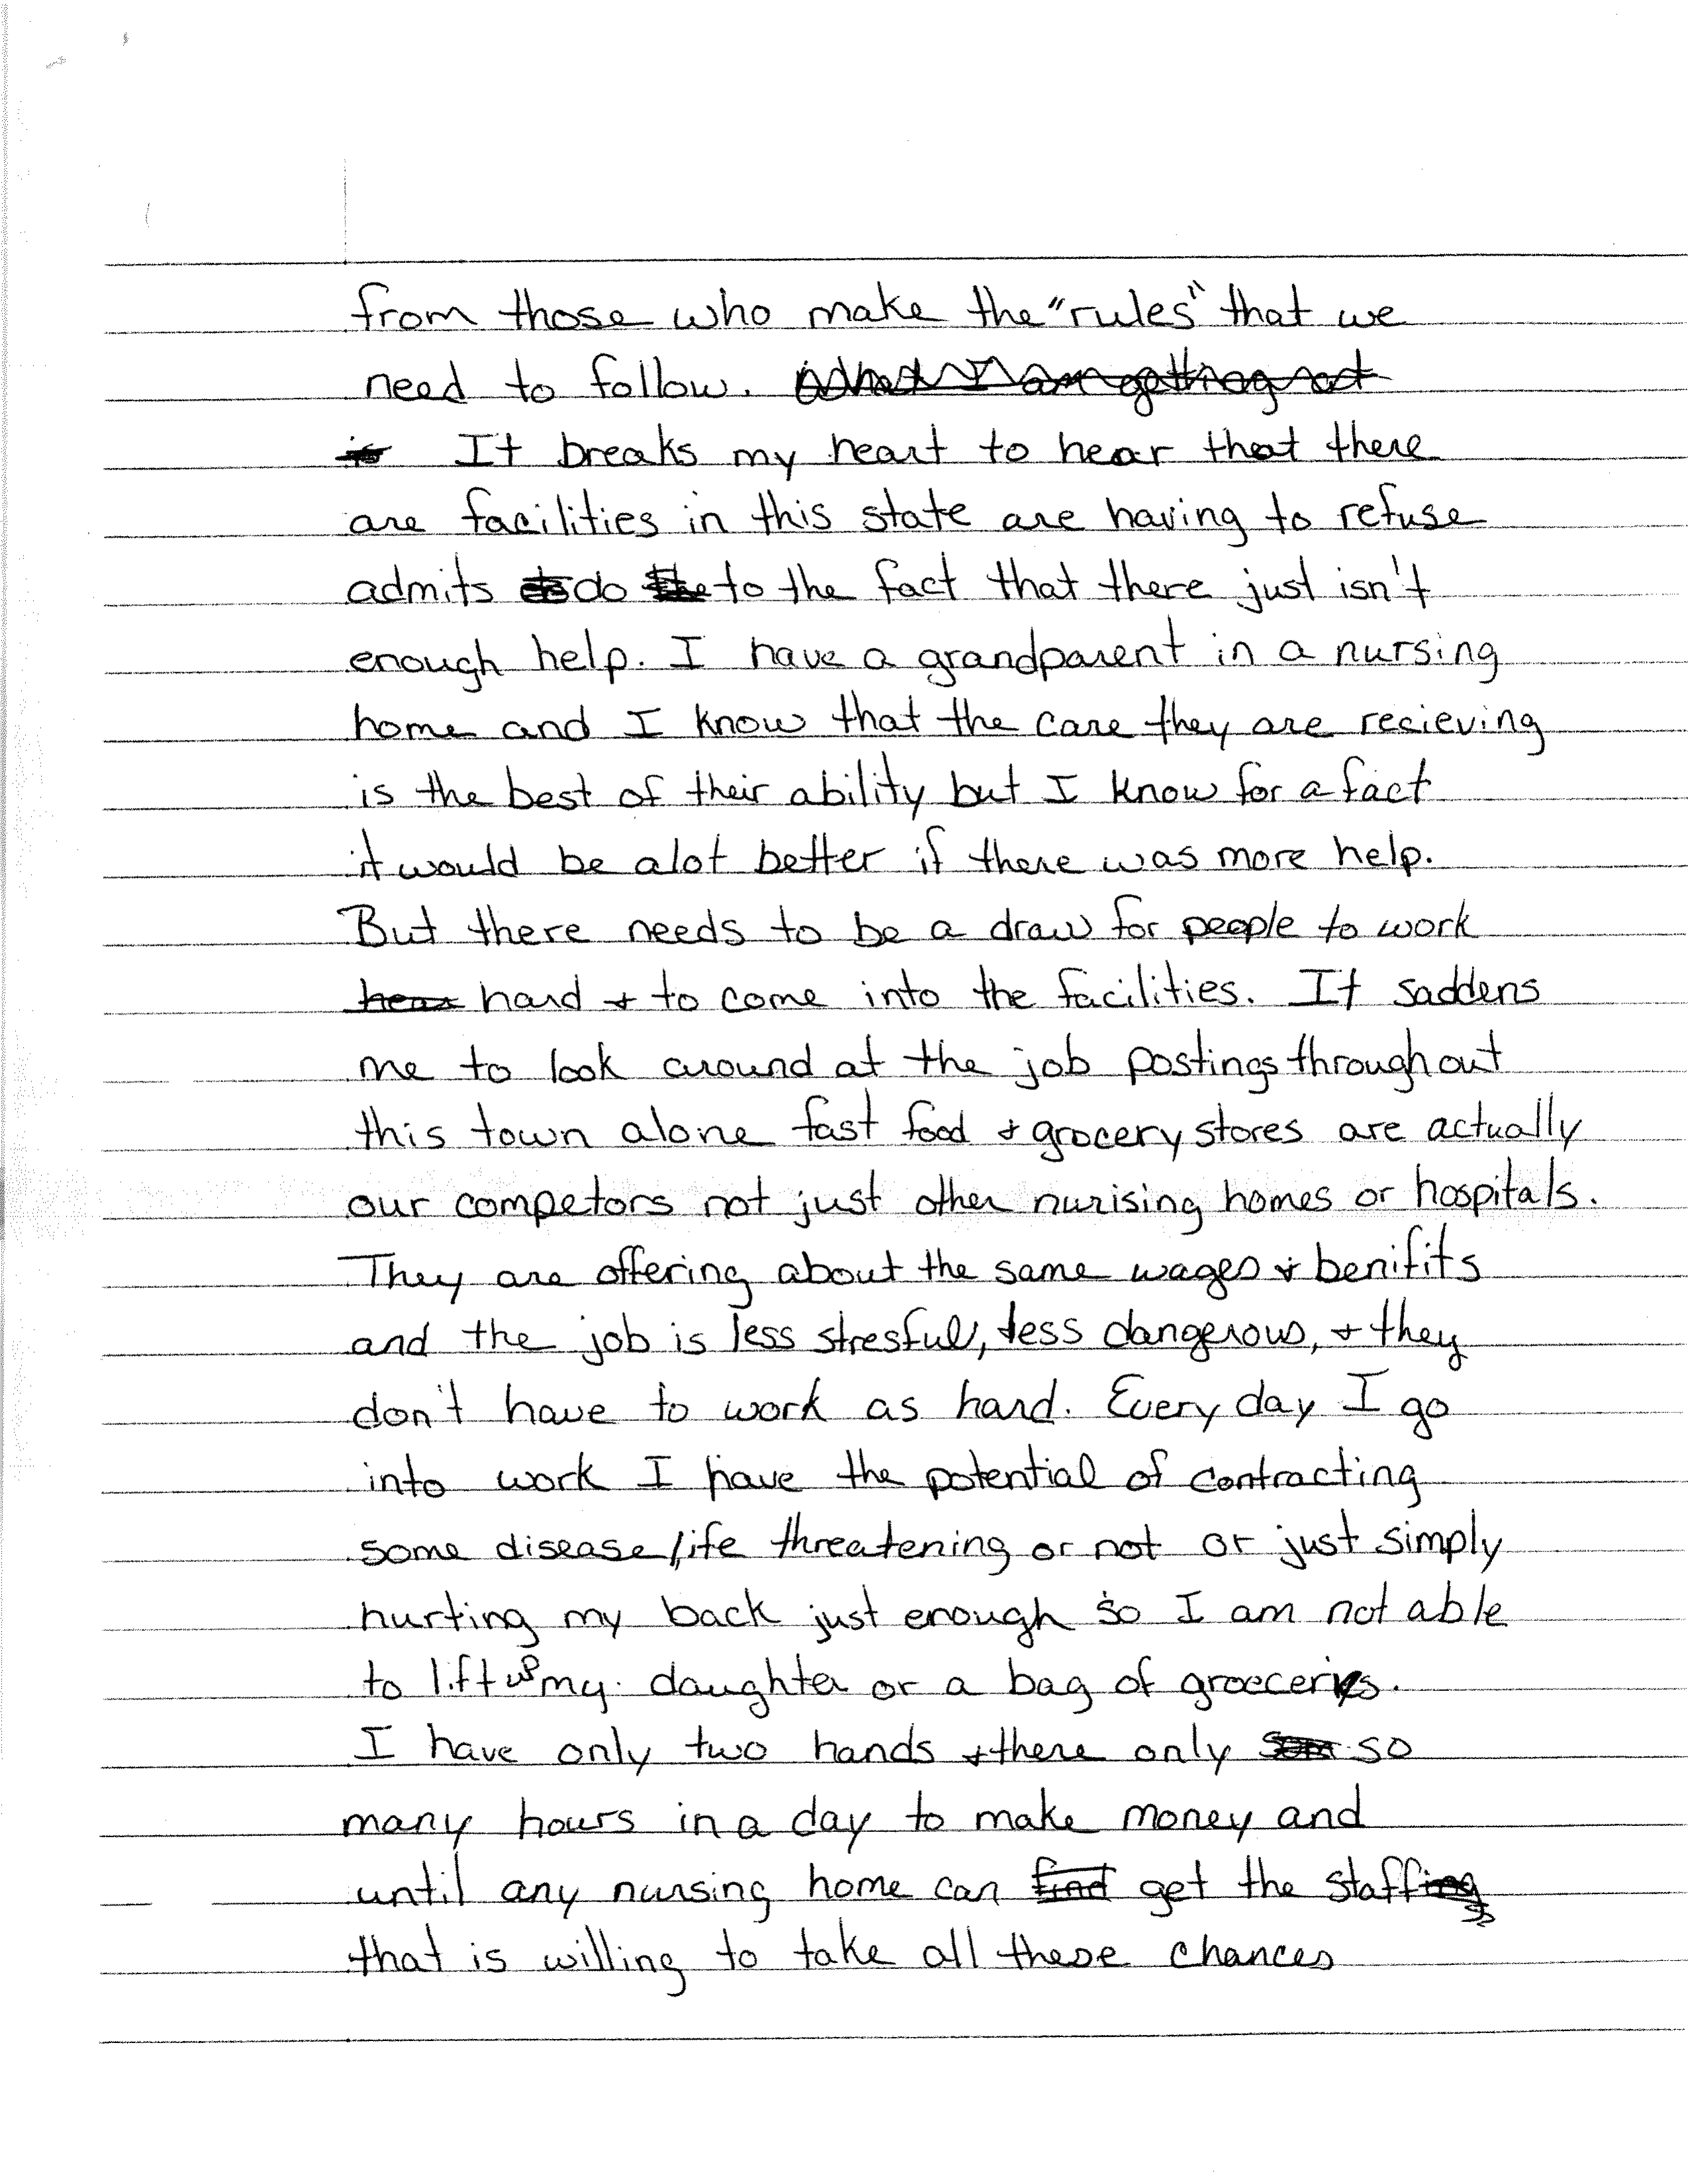 from those who make the "rules" that we
need to follow. What I am getting at
is It breaks my heart to hear that there
are facilities in this state are having to refuse
admits do to the fact that there just isn't
enough help. I have a grandparent in a nursing
home and I know that the care they are recieving
is the best of their ability but I know for a fact
it would be alot better if there was more help.
But there needs to be a draw for people to work
hard + to come into the facilities. It saddens
me to look around at the job postings throughout
this town alone fast food + grocery stores are actually
our competors not just other nurising homes or hospitals.
They are offering about the same wages + benifits
and the job is less stresful, less dangerous, + they
don't have to work as hard. Every day I go
into work I have the potential of contracting
some disease life threatening or not or just simply
hurting my back just enough so I am not able
to lift up my daughter or a bag of grocceries.
I have only two hands + there only so
many hours in a day to make money and
until any nursing home can find get the staffing
that is willing to take all these chances